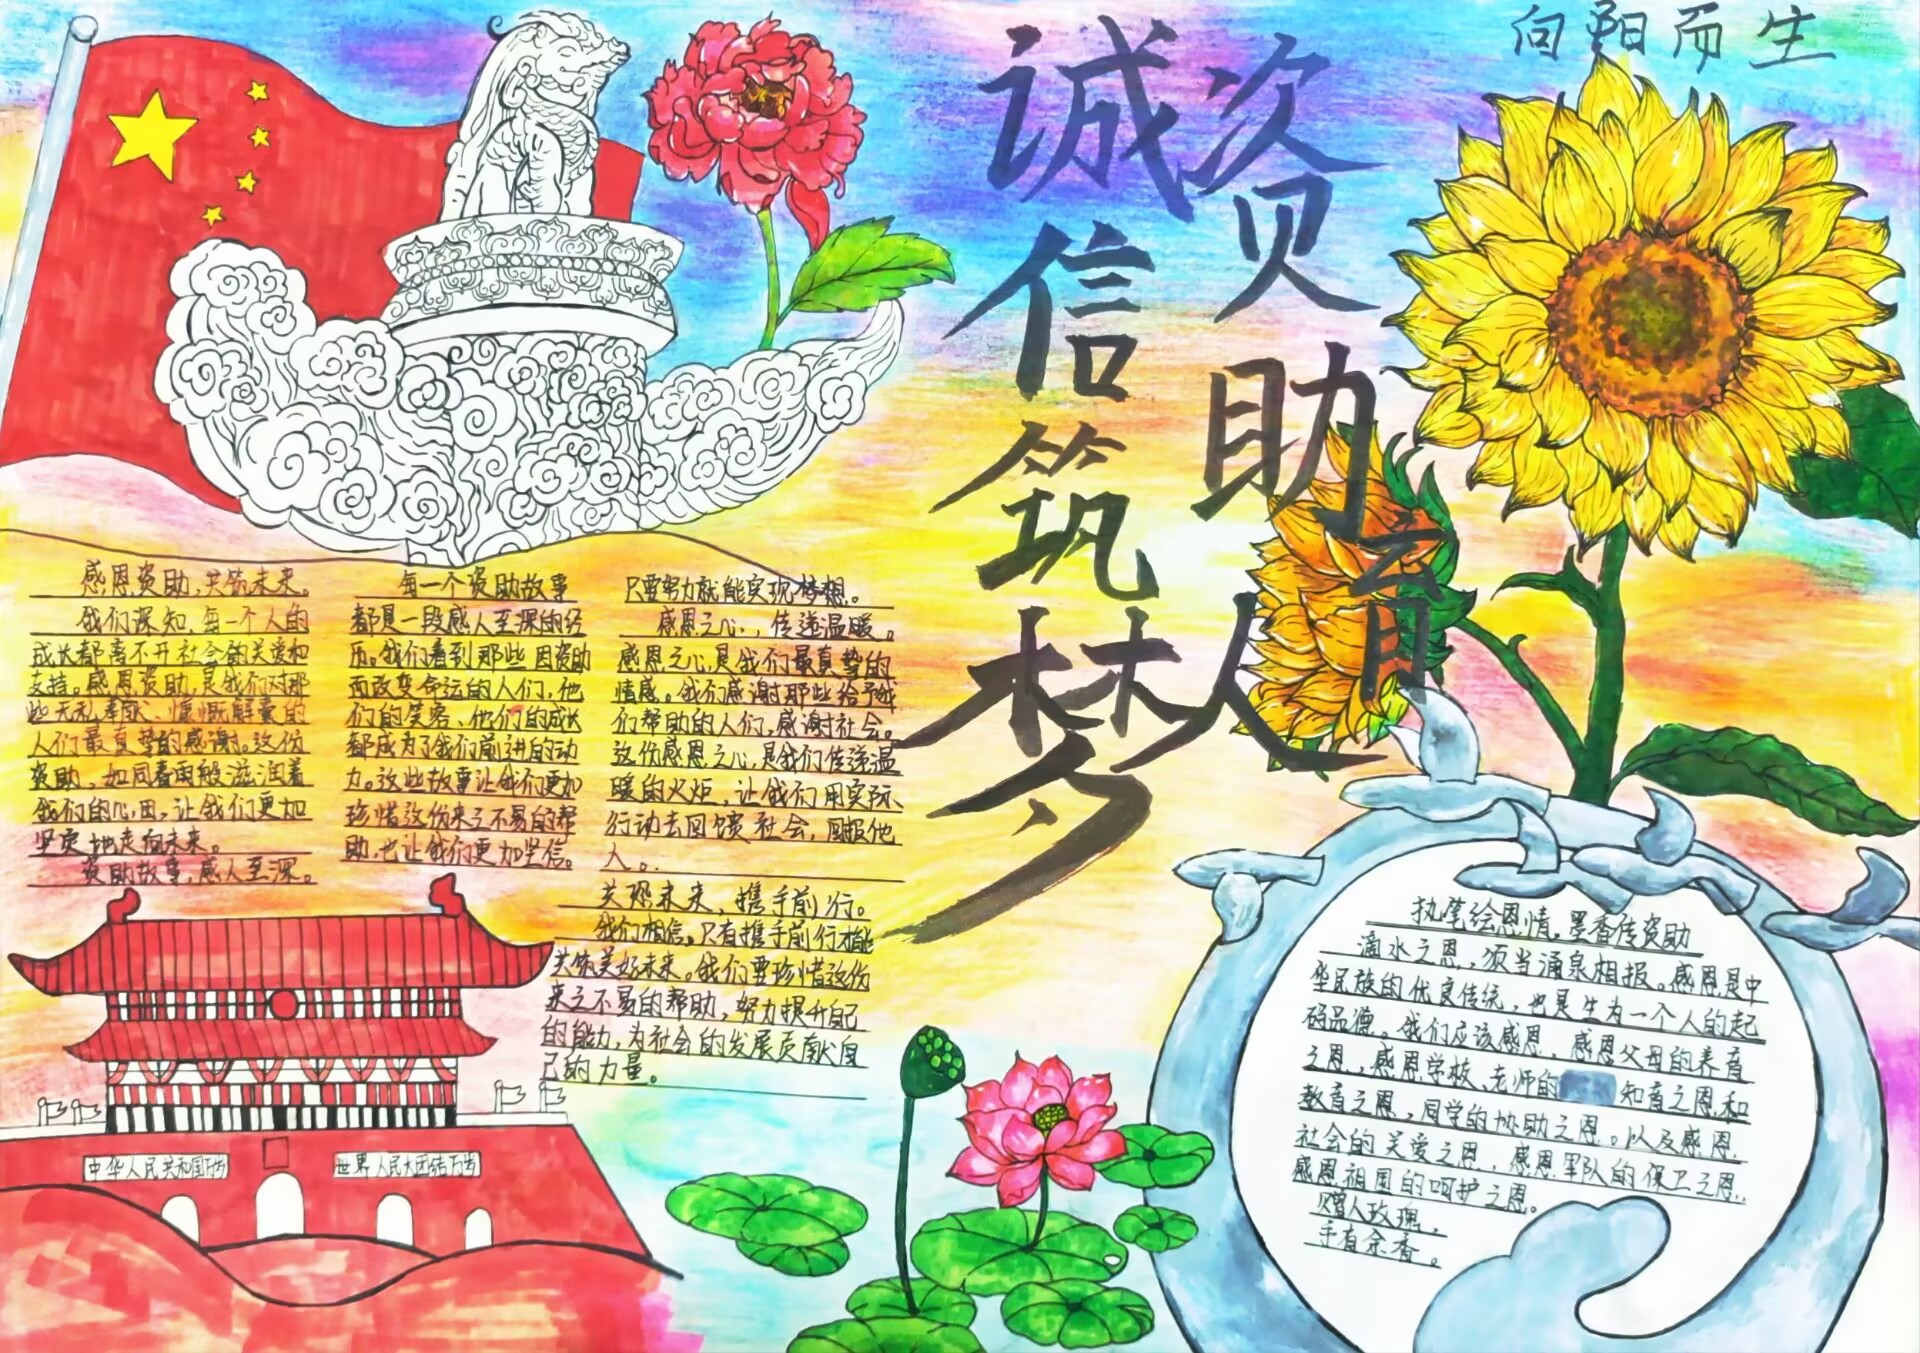 向阳而生
诚信筑梦
资助育人
感恩资助,共筑未来。
我们深知,每一个人的
成长都离不开社会的关爱和
支持。感恩资助,是我们对那
些无私奉献、慷慨解囊的
人们最真挚的感谢。这份
资助,如同春雨般滋润着
我们的心田,让我们更加
坚定地走向未来。
资助故事,感人至深。
每一个资助故事
都是一段感人至深的经
历。我们看到那些因资助
而改变命运的人们,他
们的笑容、他们的成长
都成为了我们前进的动
力。这些故事让我们更加
珍惜这份来之不易的帮
助,也让我们更加坚信。
只要努力就能实现梦想。
感恩之心,传递温暖。
感恩之心,是我们最真挚的
情感。我们感谢那些给予我
们帮助的人们,感谢社会。
这份感恩之心,是我们传递温
暖的火炬,让我们用实际
行动去回馈社会,回报他
人。
共筑未来,携手前行。
我们相信,只有携手前行才能
共筑美好未来。我们要珍惜这份
来之不易的帮助,努力提升自己
的能力,为社会的发展贡献自
己的力量。
中华人民共和国万岁
世界人民大团结万岁
执笔绘恩情,墨香传资助
滴水之恩,须当涌泉相报。感恩是中
华民族的优良传统,也是生为一个人的起
码品德。我们应该感恩,感恩父母的养育
之恩,感恩学校、老师的 知育之恩和
教育之恩,同学的协助之恩。以及感恩
社会的关爱之恩,感恩军队的保卫之恩,
感恩祖国的呵护之恩。
赠人玫瑰,
手有余香。